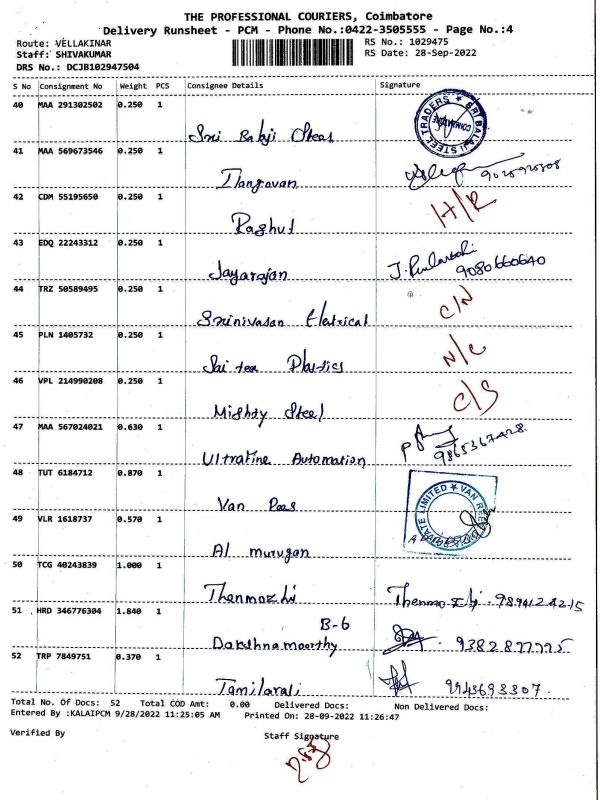 THE PROFESSIONAL COURIERS, Coimbatore
Delivery Runsheet - PCM - Phone No.:0422-3505555 - Page No.:4
Route: VELLAKINAR RS No.: 1029475
Staff: SHIVAKUMAR RS Date: 28-Sep-2022
DRS No.: DCJB102947504
S No Consignment No Weight PCS Consignee Details Signature
40 MAA 291302502 0.250 1
Sri Balaji Steel SRI BALAJI STEEL TRADERS COIMBATORE
41 MAA 569673546 0.250 1
Ilangovan
42 CDM 55195650 0.250 1 H/R
Raghul
43 EDQ 22243312 0.250 1
Jayarajan 9080660640
44 TRZ 50589495 0.250 1 C/N
Srinivasan Electrical
45 PLN 1405732 0.250 1 N/C
Sai tea Plastics
46 VPL 214990208 0.250 1 C/S
Mighty Steel
47 MAA 567024021 0.630 1 9865367428
Ultrafine Automation
48 TUT 6184712 0.870 1
Van Rees VATE LIMITED ★ VAN REE
49 VLR 1618737 0.570 1
Al murugan
50 TCG 40243839 1.000 1
Thenmozhi Thenmozhi 9894124215
51 HRD 346776304 1.840 1 B-6
Dakshnamoorthy 9382877775
52 TRP 7849751 0.370 1
Tamilarasi 9943693307.
Total No. Of Docs: 52 Total COD Amt: 0.00 Delivered Docs: Non Delivered Docs:
Entered By :KALAIPCM 9/28/2022 11:25:05 AM Printed On: 28-09-2022 11:26:47
Verified By Staff Signature